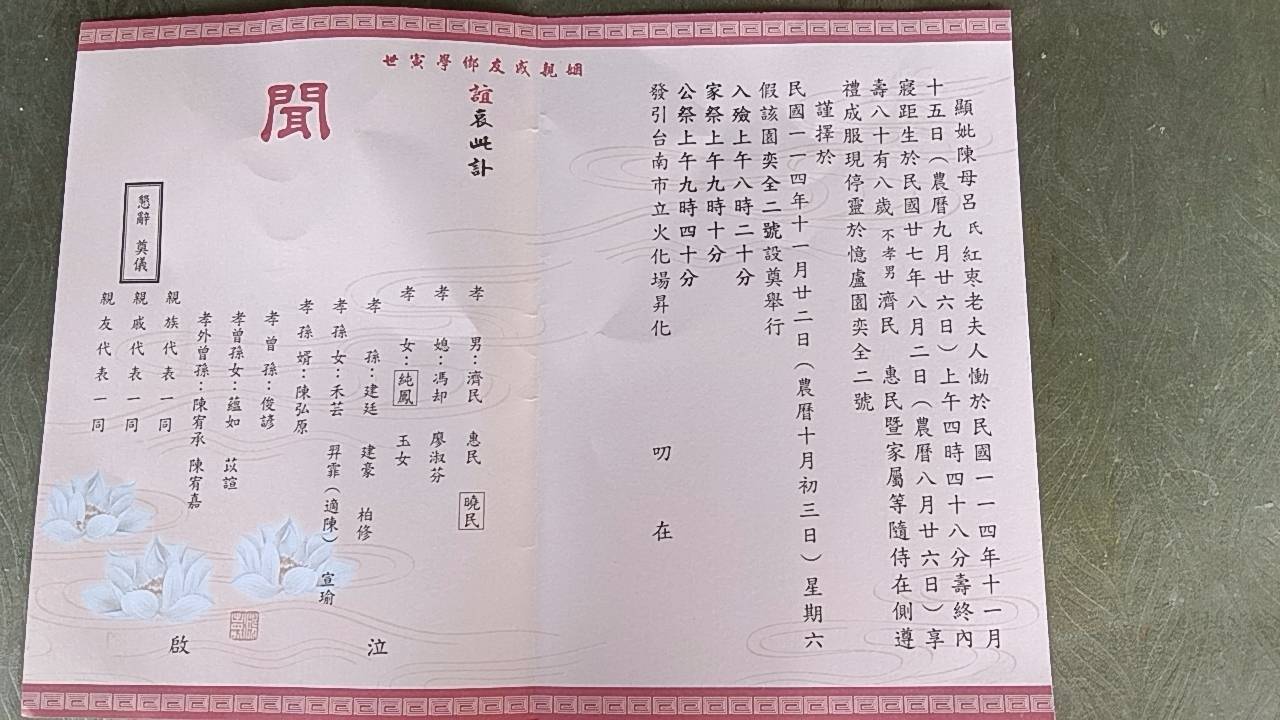 顯妣陳母呂氏紅枣老夫人慟於民國一一四年十一月
十五日（農曆九月廿六日）上午四時四十八分壽終內
寢距生於民國廿七年八月二日（農曆八月廿六日）享
壽八十有八歲不孝男濟民 惠民暨家屬等隨侍在側遵
禮成服現停靈於憶盧園奕全二號
謹擇於
民國一一四年十一月廿二日（農曆十月初三日）星期六
假該園奕全二號設奠舉行
入殮上午八時二十分
家祭上午九時十分
公祭上午九時四十分
發引台南市立火化場昇化
叨在
姻親戚友鄉學寅世
誼哀此訃
聞
孝男：濟民 惠民 曉民
孝媳：馮却 廖淑芬
孝女：純鳳 玉女
孝孫：建廷 建豪 柏修
孝孫女：禾芸 羿霏（適陳） 宣瑜
孝孫婿：陳弘原
孝曾孫：俊諺
孝曾孫女：蘊如 苡諠
孝外曾孫：陳宥承 陳宥嘉
親族代表一同
親戚代表一同
親友代表一同
泣
啟
懇辭 奠儀